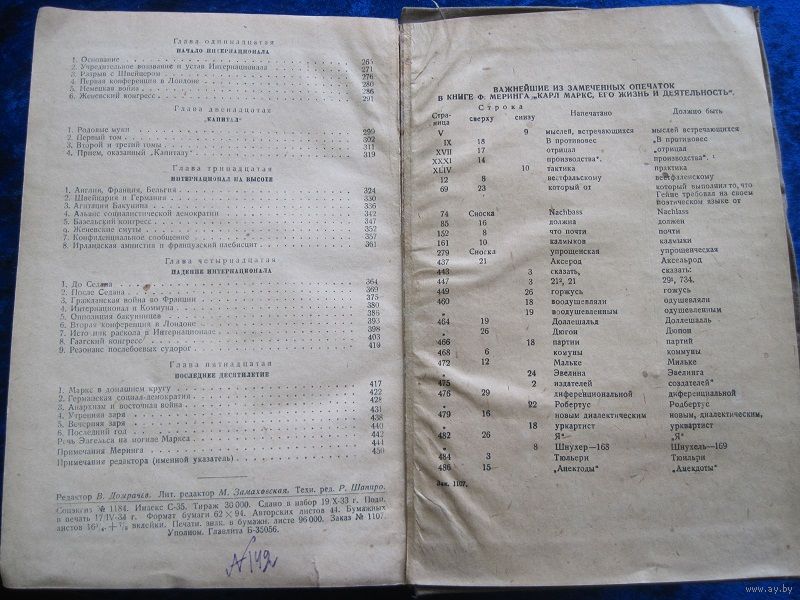 Глава одиннадцатая
НАЧАЛО ИНТЕРНАЦИОНАЛА
1. Основание 265
2. Учредительное воззвание и устав Интернационала 271
3. Разрыв с Швейцером 276
4. Первая конференция в Лондоне 280
5. Немецкая война 286
6. Женевский конгресс 291
Глава двенадцатая
„КАПИТАЛ“
1. Родовые муки 299
2. Первый том 302
3. Второй и третий томы 311
4. Прием, оказанный „Капиталу“ 319
Глава тринадцатая
ИНТЕРНАЦИОНАЛ НА ВЫСОТЕ
1. Англия, Франция, Бельгия 324
2. Швейцария и Германия 330
3. Агитация Бакунина 336
4. Альянс социалистической демократии 342
5. Базельский конгресс 347
6. Женевские смуты 352
7. Конфиденциальное сообщение 357
8. Ирландская амнистия и французский плебисцит 361
Глава четырнадцатая
ПАДЕНИЕ ИНТЕРНАЦИОНАЛА
1. До Седана 364
2. После Седана 369
3. Гражданская война во Франции 375
4. Интернационал и Коммуна 380
5. Оппозиция бакунинцев 386
6. Вторая конференция в Лондоне 393
7. Источник раскола в Интернационале 398
8. Гаагский конгресс 403
9. Резонанс послебоевых судорог 419
Глава пятнадцатая
ПОСЛЕДНЕЕ ДЕСЯТИЛЕТИЕ
1. Маркс в домашнем кругу 417
2. Германская социал-демократия 422
3. Анархизм и восточная война 428
4. Утренняя заря 431
5. Вечерняя заря 438
6. Последний год 440
Речь Энгельса на могиле Маркса 442
Примечания Меринга 444
Примечания редактора (именной указатель) 450
Редактор В. Домрачев. Лит. редактор М. Замаховская. Техн. ред. Р. Шапиро.
Соцэкгиз № 1184. Индекс С-35. Тираж 36 000. Сдано в набор 19/X-33 г. Подп.
в печать 17/IV-34 г. Формат бумаги 62 × 94. Авторских листов 44. Бумажных
вклейки. Печатн. знак. в бумажн. листе 96 000. Заказ № 1107.
Уполном. Главлита Б-35056.
№ 142
ВАЖНЕЙШИЕ ИЗ ЗАМЕЧЕННЫХ ОПЕЧАТОК
В КНИГЕ Ф. МЕРИНГА „КАРЛ МАРКС, ЕГО ЖИЗНЬ И ДЕЯТЕЛЬНОСТЬ“.
Страница Строка сверху снизу Напечатано Должно быть
V 9 мыслей, встречающихся мыслей встречающихся
IX 18 В противовес „В противовес
XVII 17 отрицал „отрицал
XXXI 14 производства“. производства“.
XLIV 10 тактика практика
12 8 вестфальскому вестфаленскому
69 23 который от который выполнил то, что
Гейне требовал на своем
поэтическом языке от
74 Сноска Nachbass Nachlass
85 16 должна должен
152 8 что почти почти
161 10 калмыков калмыки
279 Сноска упрощенская упрощенческая
437 21 Аксерод Аксельрод
443 3 сказать, сказать:
447 3 21², 21 29¹, 734.
449 26 горжусь гожусь
460 18 воодушевляли одушевляли
„ 19 воодушевленным одушевленным
464 19 Доллешалья Доллешалль
„ 26 Дюгон Дюпон
466 18 партии партий
468 6 комуны коммуны
472 12 Мальке Мильке
„ 24 Эвелина Эвелинга
475 2 издателей создателей“
476 29 диференциональной диференциальной
„ 22 Робертус Родбертус
479 16 новым диалектическим новым, диалектическим,
„ 18 уркартист урквартист
482 26 Я“ „Я“
„ 8 Шнухер—168 Шнухель—169
484 3 Тюльери Тюильри
486 15 „Анектоды“ „Анекдоты“
Зак. 1107.
www.ay.by